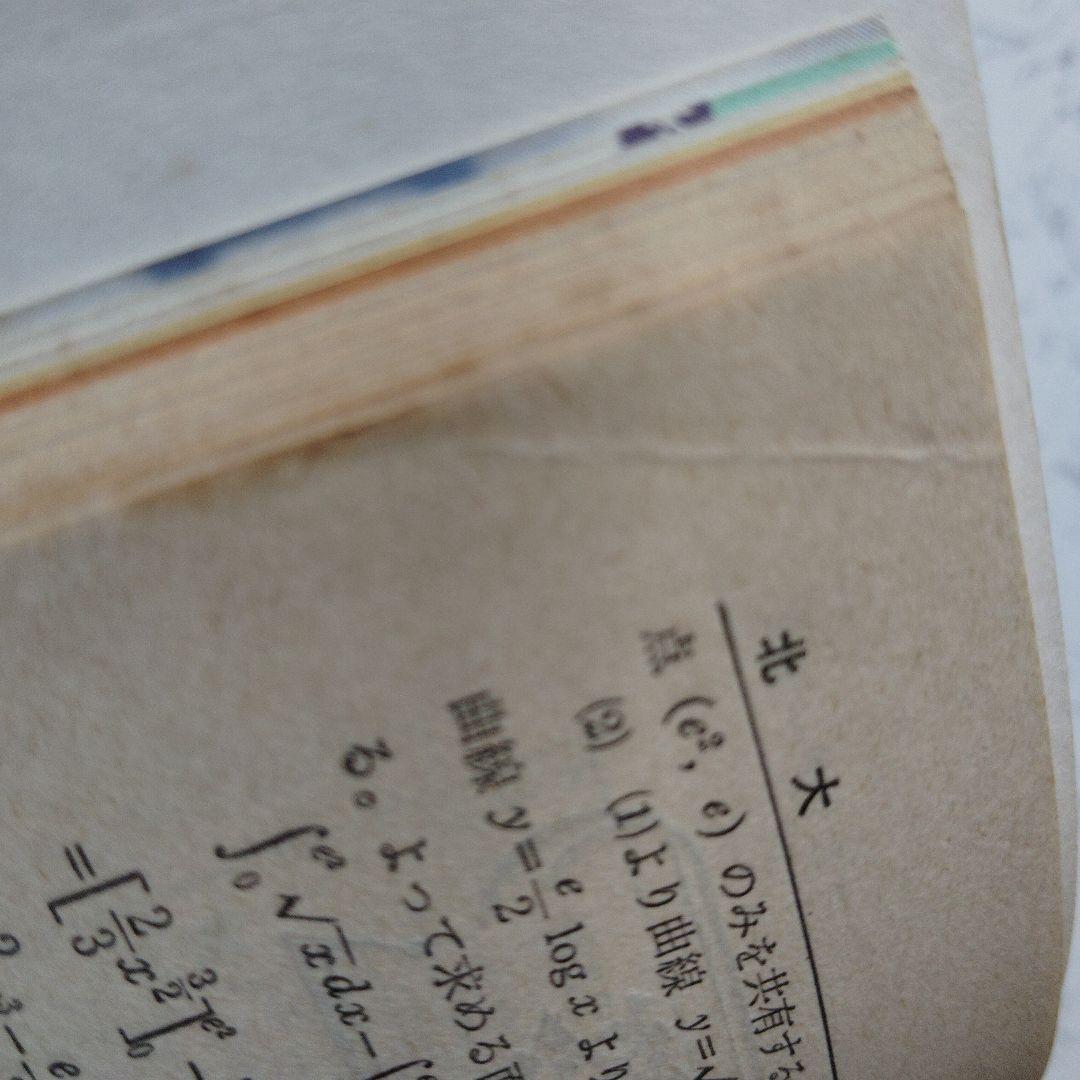 北大
点 (e², e) のみを共有する
(2) (1)より曲線 y=√
曲線 y=e/2 log x より
る。よって求める
∫₀^{e²} √x dx−∫
=[2/3 x^{3/2}]₀^{e²}−